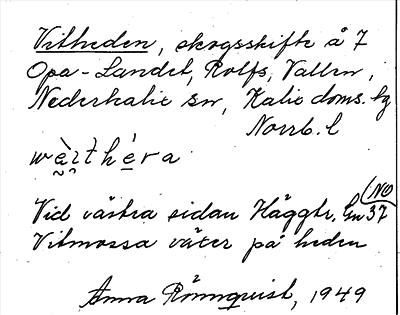 Vitheden, skogsskifte å 7
Opa-Landet, Rolfs, Vallen,
Nederkalix sn, Kalix doms. tg
Norrb. l
Vid västra sidan Häggtr, Gn 37 (NO
Vitmossa växer på heden
Anna Rönnquist, 1949